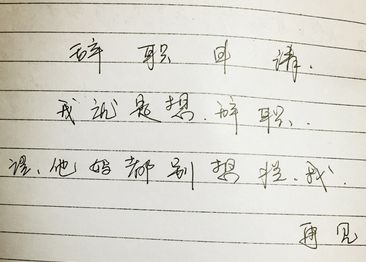 辞职申请.
我就是想.辞职.
谁、他妈都别想拦、我.
再见